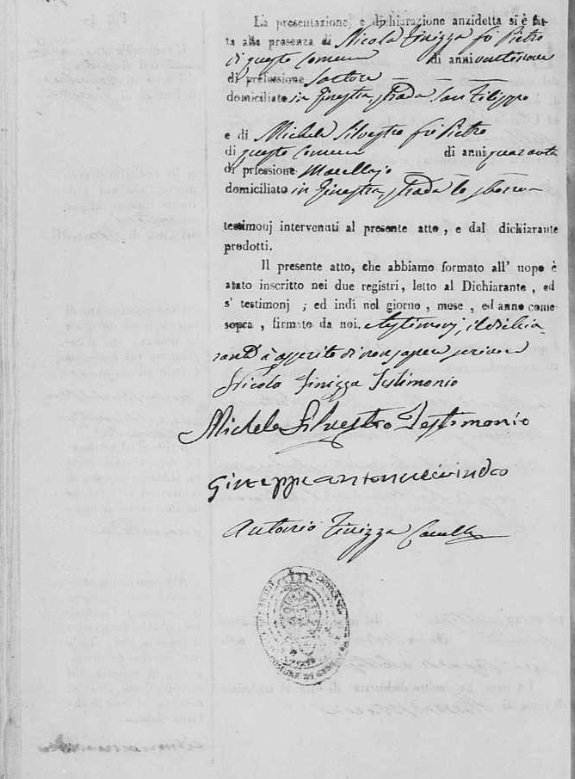 La presentazione, e dichiarazione anzidetta si è fat-
ta alla presenza di Nicola Finizza fù Pietro
di questo Comune di anni ventinove
di professione Sartore
domiciliato in Ginestra, strada San Filippo
e di Michele Silvestro fù Pietro
di questo Comune di anni quaranta
di prfessione Macellajo
domiciliato in Ginestra, strada lo
testimonj intervenuti al presente atto, e dal dichiarante
prodotti.
Il presente atto, che abbiamo formato all' uopo è
stato inscritto nei due registri, letto al Dichiarante, ed
a' testimonj; ed indi nel giorno, mese, ed anno come
sopra, firmato da noi, e testimonj, il dichia
rante à asserito di non sapere scrivere
Nicola Finizza Testimonio
Michele Silvestro Testimonio
Giuseppe
Antonio Finizza